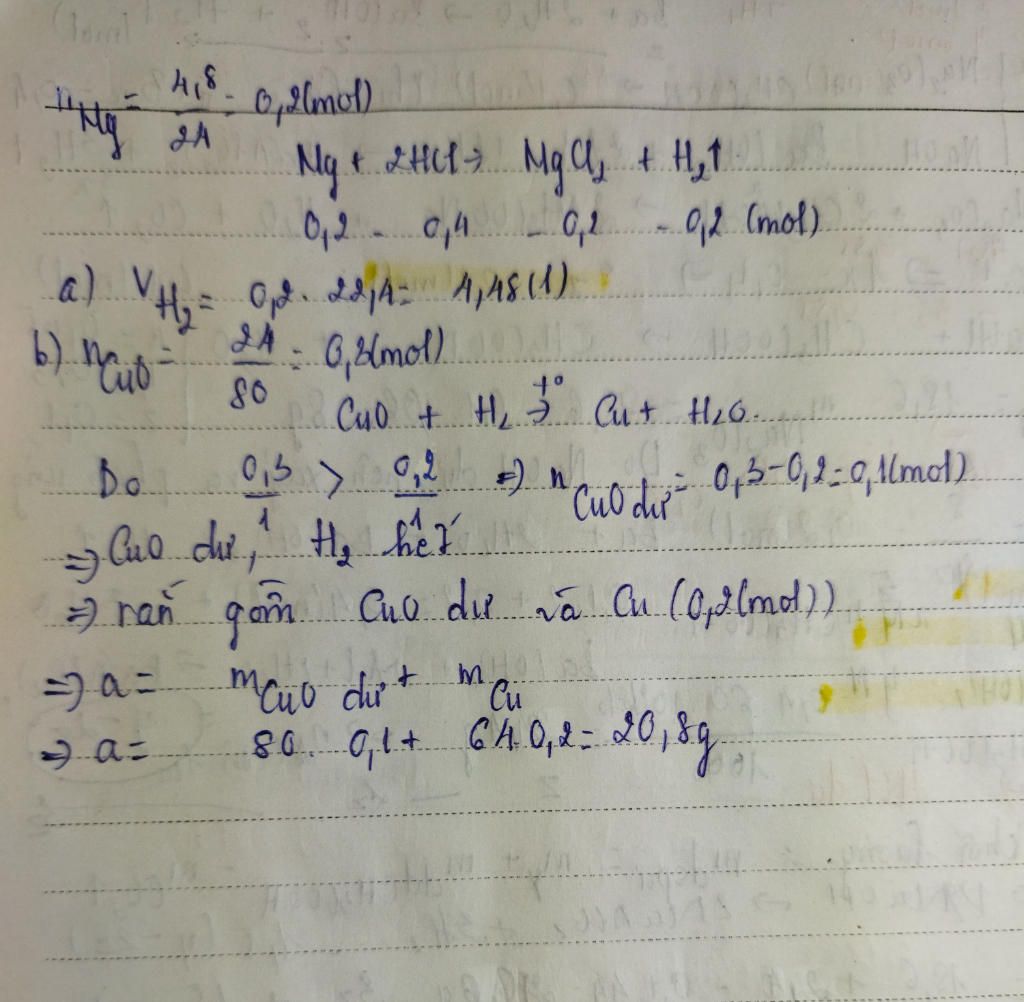 nMg = 4,8/24 = 0,2(mol)
Mg + 2HCl → MgCl2 + H2↑
0,2 - 0,4 - 0,2 - 0,2 (mol)
a) VH2 = 0,2 . 22,4 = 4,48 (l)
b) nCuO = 24/80 = 0,3(mol)
CuO + H2 t°→ Cu + H2O.
Do 0,3/1 > 0,2/1 => nCuO dư = 0,3-0,2 = 0,1(mol)
=> CuO dư, H2 hết
=> rắn gồm CuO dư và Cu (0,2(mol))
=> a = mCuO dư + mCu
=> a = 80. 0,1 + 64.0,2 = 20,8g